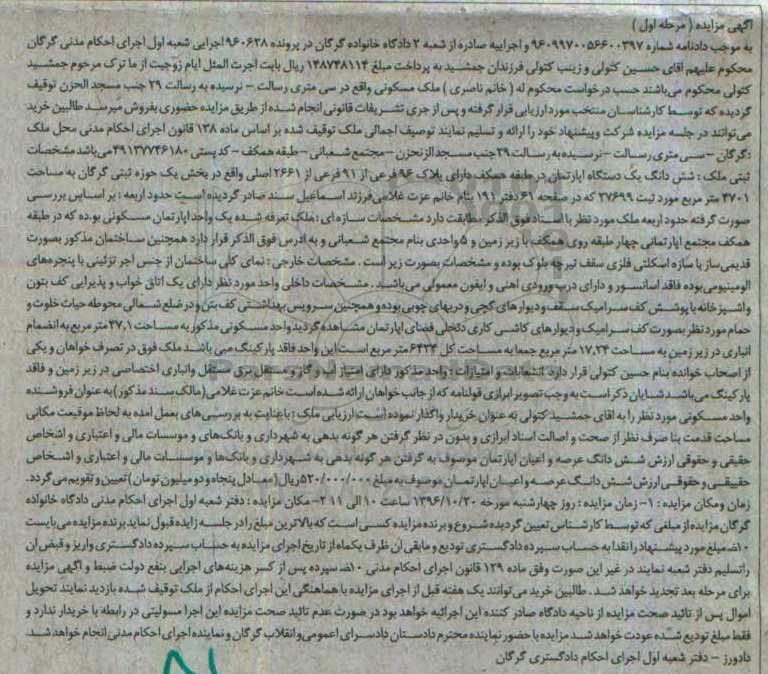 آگهی مزایده ( مرحله اول )
به موجب دادنامه شماره ۹۶۰۹۹۷۰۰۵۶۶۰۰۳۹۷ و اجراییه صادره از شعبه ۲ دادگاه خانواده گرگان در پرونده ۹۶۰۶۳۸ اجرایی شعبه اول اجرای احکام مدنی گرگان
محکوم علیهم آقای حسین کتولی و زینب کتولی فرزندان جمشید به پرداخت مبلغ ۱۴۸۷۴۸۱۱۴ ریال بابت اجرت المثل ایام زوجیت از ما ترک مرحوم جمشید
کتولی محکوم می‌باشند حسب درخواست محکوم له ( خانم ناصری ) ملک مسکونی واقع در سی متری رسالت – نرسیده به رسالت ۲۹ جنب مسجد الحزن توقیف
گردیده که توسط کارشناسان منتخب مورد ارزیابی قرار گرفته و پس از جری تشریفات قانونی انجام شده از طریق مزایده حضوری بفروش میرسد طالبین خرید
می‌توانند در جلسه مزایده شرکت و پیشنهاد خود را ارائه و تسلیم نمایند توصیف اجمالی ملک توقیف شده بر اساس ماده ۱۳۸ قانون اجرای احکام مدنی محل ملک
: گرگان – سی متری رسالت – نرسیده به رسالت ۲۹ جنب مسجد الزنحزن – مجتمع شعبانی – طبقه همکف – کد پستی ۴۹۱۳۷۷۴۶۱۸۰ می‌باشد مشخصات
ثبتی ملک : شش دانگ یک دستگاه اپارتمان در طبقه همکف دارای پلاک ۹۶ فرعی از ۹۱ فرعی از ۲۶۶۱ اصلی واقع در بخش یک حوزه ثبتی گرگان به مساحت
۴۷۰۱ متر مربع مورد ثبت ۳۷۶۹۹ که در صفحه ۶۱ دفتر ۱۹۱ بنام خانم عزت غلامی فرزند اسماعیل سند صادر گردیده است حدود اربعه : بر اساس بررسی
صورت گرفته حدود اربعه ملک مورد نظر با اسناد فوق الذکر مطابقت دارد مشخصات سازه ای : ملک تعرفه شده یک واحد اپارتمان مسکونی بوده که در طبقه
همکف مجتمع اپارتمانی چهار طبقه روی همکف با زیر زمین و ۵ واحدی بنام مجتمع شعبانی و به ادرس فوق الذکر قرار دارد همچنین ساختمان مذکور بصورت
قدیمی‌ساز با سازه اسکلتی فلزی سقف تیرچه بلوک بوده و مشخصات بصورت زیر است . مشخصات خارجی : نمای کلی ساختمان از جنس اجر تزئینی با پنجره‌های
الومینیومی بوده فاقد اسانسور و دارای درب ورودی اهنی و ایفون معمولی می‌باشد . مشخصات داخلی واحد مورد نظر دارای یک اتاق خواب و پذیرایی کف بتون
و اشپزخانه با پوشش کف سرامیک سقف و دیوارهای گچی و دربهای چوبی بوده و همچنین سرویس بهداشتی کف بتن و در ضلع شمالی محوطه حیات خلوت و
حمام مورد نظر بصورت کف سرامیک و دیوارهای کاشی کاری داخلی فضای اپارتمان مشاهده گردید واحد مسکونی مذکور به مساحت ۴۷.۱ متر مربع به انضمام
انباری در زیر زمین به مساحت ۱۷.۲۴ متر مربع جمعا به مساحت کل ۶۴۳۴ متر مربع است این واحد فاقد پارکینگ می باشد ملک فوق در تصرف خواهان و یکی
از اصحاب خوانده بنام حسین کتولی قرار دارد انشعابات و امتیازات : واحد مذکور دارای امتیاز اب و گاز و مستقل برق مستقل و انباری اختصاصی در زیر زمین و فاقد
پارکینگ می‌باشد شایان ذکر است به وجب تصویر ابرازی قولنامه که از جانب خواهان ارائه شده است خانم عزت غلامی ( مالک سند مذکور ) به عنوان فروشنده
واحد مسکونی مورد نظر را به اقای جمشید کتولی به عنوان خریدار واگذار نموده است ارزیابی ملک : باعنایت به بررسی‌های بعمل امده به لحاظ موقیعت مکانی
مساحت قدمت بنا صرف نظر از صحت و اصالت اسناد ابرازی و بدون در نظر گرفتن هر گونه بدهی به شهرداری و بانک‌های و موسسات مالی و اعتباری و اشخاص
حقیقی و حقوقی ارزش شش دانگ عرصه و اعیان اپارتمان موصوف به گرفتن هر گونه بدهی به شهرداری و بانک‌ها و موسسات مالی و اعتباری و اشخاص
حقییقی و حقوقی ارزش شش دانگ عرصه و اعیان اپارتمان موصوف به مبلغ ۵۲۰/۰۰۰/۰۰۰ ریال ( معادل پنجاه و دو میلیون تومان ) تعیین و تقویم می گردد.
زمان ومکان مزایده : ۱- زمان مزایده : روز چهارشنبه مورخه ۱۳۹۶/۱۰/۲۰ ساعت ۱۰ الی ۱۱ ۲- مکان مزایده : دفتر شعبه اول اجرای احکام مدنی دادگاه خانواده
گرگان مزایده از مبلغی که توسط کارشناس تعیین گردیده شروع و برنده مزایده کسی است که بالاترین مبلغ را در جلسه زایده قبول نماید برنده مزایده می بایست
۱۰٪ مبلغ مورد پیشنهاد را نقدا به حساب سپرده دادگستری تودیع و مابقی ان ظرف یکماه از تاریخ اجرای مزایده به حساب سپرده دادگستری واریز و قبض ان
راتسلیم دفتر شعبه نمایند در غیر این صورت وفق ماده ۱۲۹ قانون اجرای احکام مدنی ۱۰٪ سپرده پس از کسر هزینه‌های اجرایی بنفع دولت ضبط و اگهی مزایده
برای مرحله بعد تجدید خواهد شد . طالبین خرید می توانند یک هفته قبل از اجرای مزایده با هماهنگی این اجرای احکام از ملک توقیف شده بازدید نمایند تحویل
اموال پس از تائید صحت مزایده از ناحیه دادگاه صادر کننده این اجرائیه خواهد بود در صورت عدم تائید صحت مزایده این اجرا مسولیتی در رابطه با خریدار ندارد و
فقط مبلغ تودیع شده عودت خواهد شد مزایده با حضور نماینده محترم دادستان دادسرای اعمومی وانقلاب گرگان و نماینده اجرای احکام مدنی انجام خواهد شد.
دادورز – دفتر شعبه اول اجرای احکام دادگستری گرگان